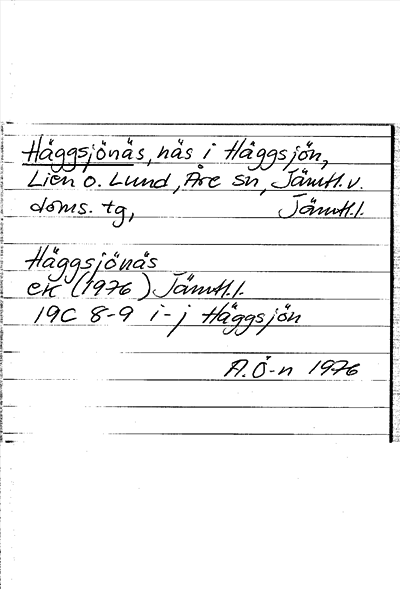 Häggsjönäs, näs i Häggsjön,
Lien o. Lund, Åre sn, Jämtl. v.
doms. tg, Jämtl. l.
Häggsjönäs
ek (1976) Jämtl. l.
19C 8-9 i-j Häggsjön
A. Ö-n 1976